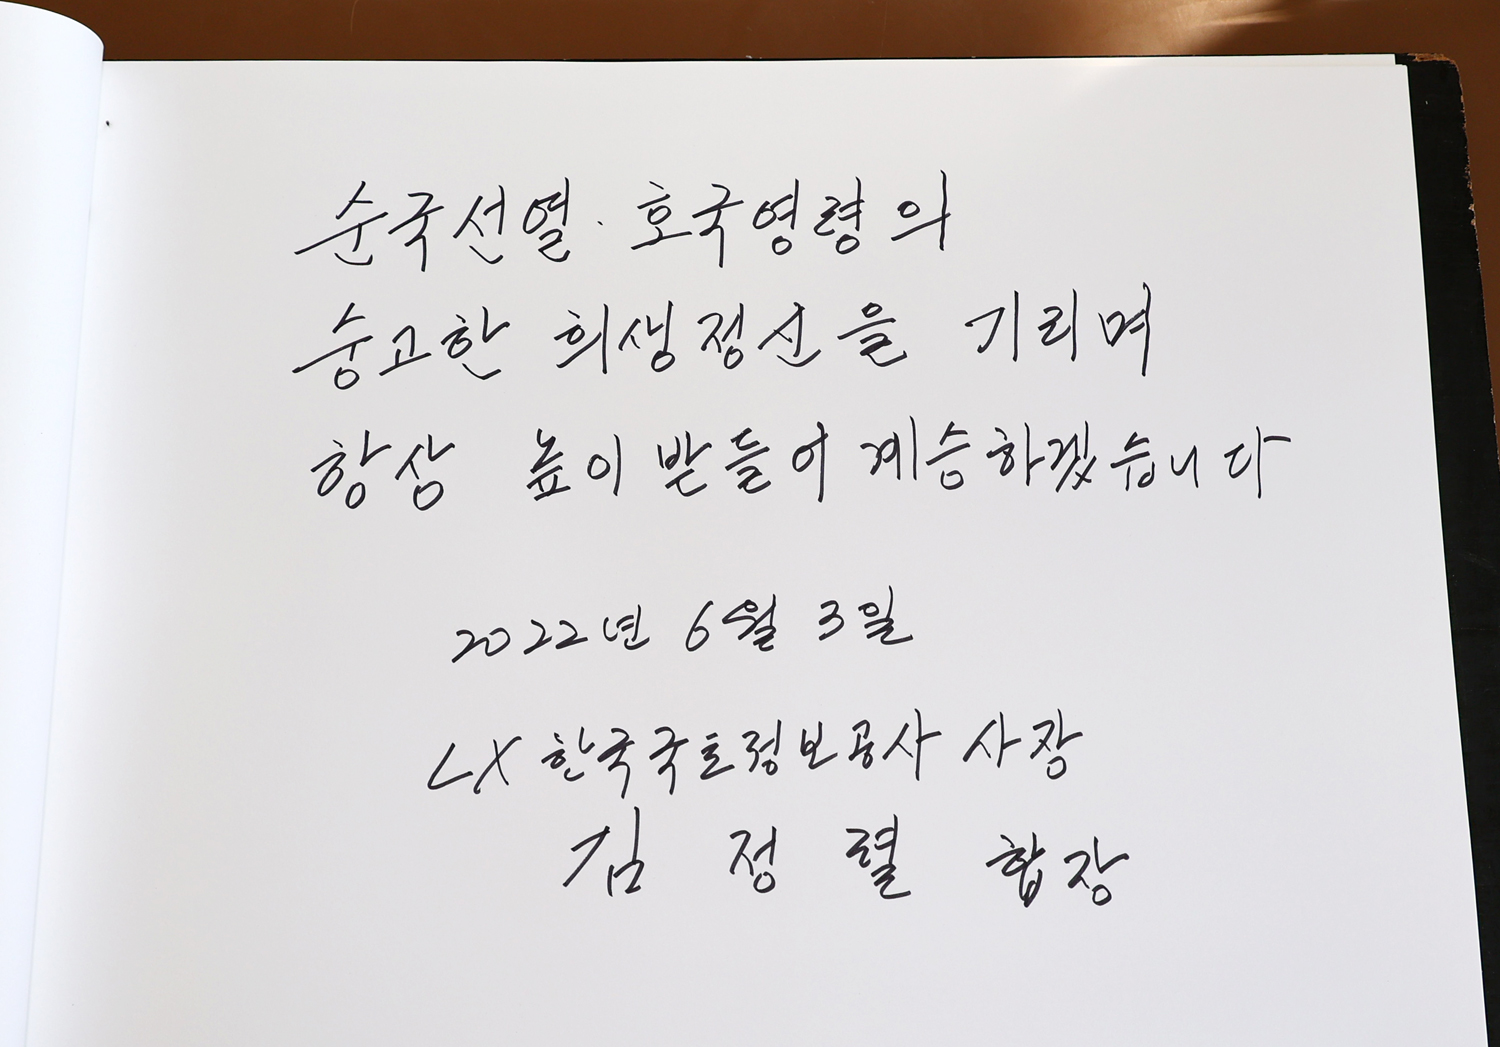 순국선열·호국영령의
숭고한 희생정신을 기리며
항상 높이 받들어 계승하겠습니다
2022년 6월 3일
LX 한국국토정보공사 사장
김 정 렬 합장